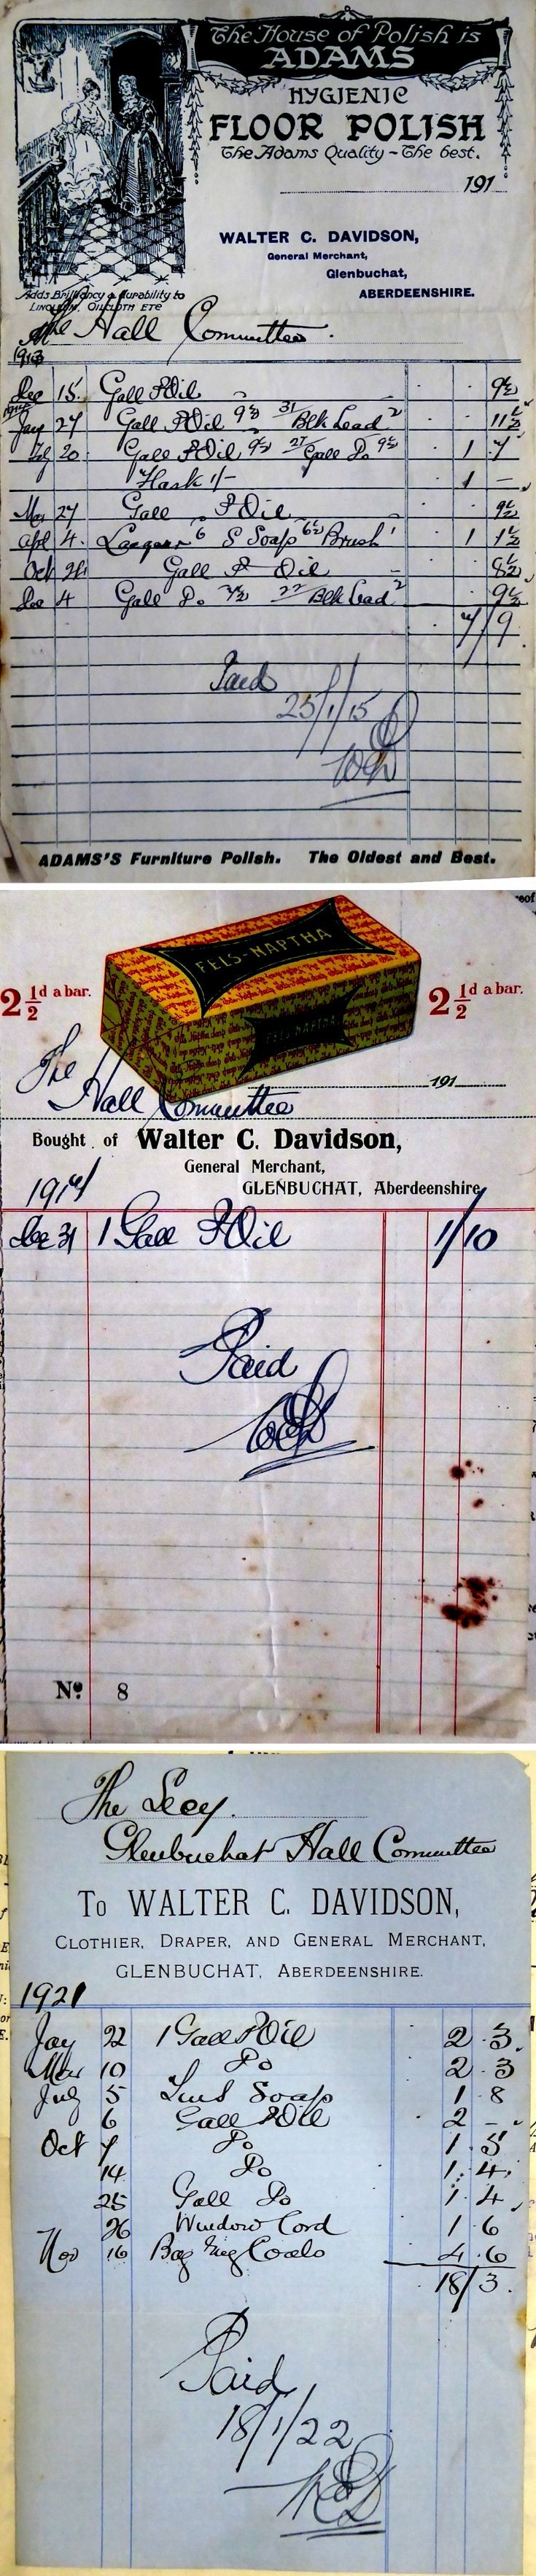 The House of Polish is
ADAMS
HYGIENIC
FLOOR POLISH
The Adams Quality - The best.
191
WALTER C. DAVIDSON,
General Merchant,
Glenbuchat,
ABERDEENSHIRE.
Adds Brilliancy & durability to
LINOLEUM, OILCLOTH ETC
The Hall Committee.
1913
Dec 15. Gall P Oil 9½
1914
Jay 27 Gall P Oil 9½ 31 Blk Lead 2 11½
20 Gall P Oil 9½ 27 Gall Do 9½ 1 7
Flask 1/- 1 –
Mar 27 Gall P Oil 9½
Apl 4. 6 S Soap 6½ Brush 1 1 1½
Oct Gall P Oil 8½
Dec 4 Gall Do 7½ 22 Blk Lead 2 9½
7/9
Paid
25/1/15
WCD
ADAMS'S Furniture Polish. The Oldest and Best.
FELS-NAPTHA
2½d a bar.
2½d a bar.
FELS-NAPTHA
191
The
Hall Committee
Bought of Walter C. Davidson,
General Merchant,
GLENBUCHAT, Aberdeenshire
1914
Dec 31 1 Gall P Oil 1/10
Paid
WCD
No. 8
The Secy.
Glenbuchat Hall Committee
To WALTER C. DAVIDSON,
CLOTHIER, DRAPER, AND GENERAL MERCHANT,
GLENBUCHAT, ABERDEENSHIRE.
1921
Jay 22 1 Gall P Oil 2 . 3
Mar 10 Do 2 . 3
July 5 Soap 1 . 8
6 Gall P Oil 2 –
Oct 7 Do 1 . 5
14 Do 1 . 4
25 Gall Do 1 . 4
26 Window Cord 1 . 6
Nov 16 Bag Coals 4 . 6
18/3.
Paid
18/1/22
WCD